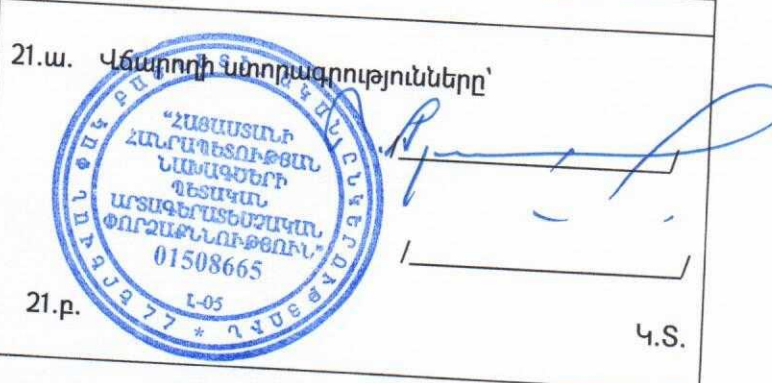 21.ա. Վճարողի ստորագրությունները՝
ՓԱԿ
"ՀԱՅԱՍՏԱՆԻ
ՀԱՆՐԱՊԵՏՈՒԹՅԱՆ
ՆԱԽԱԳԾԵՐԻ
ՊԵՏԱԿԱՆ
ԱՐՏԱԳԵՐԱՏԵՍՉԱԿԱՆ
ՓՈՐՁԱՔՆՆՈՒԹՅՈՒՆ"
01508665
Լ-05
/ /
/ /
21.բ.
Կ.Տ.